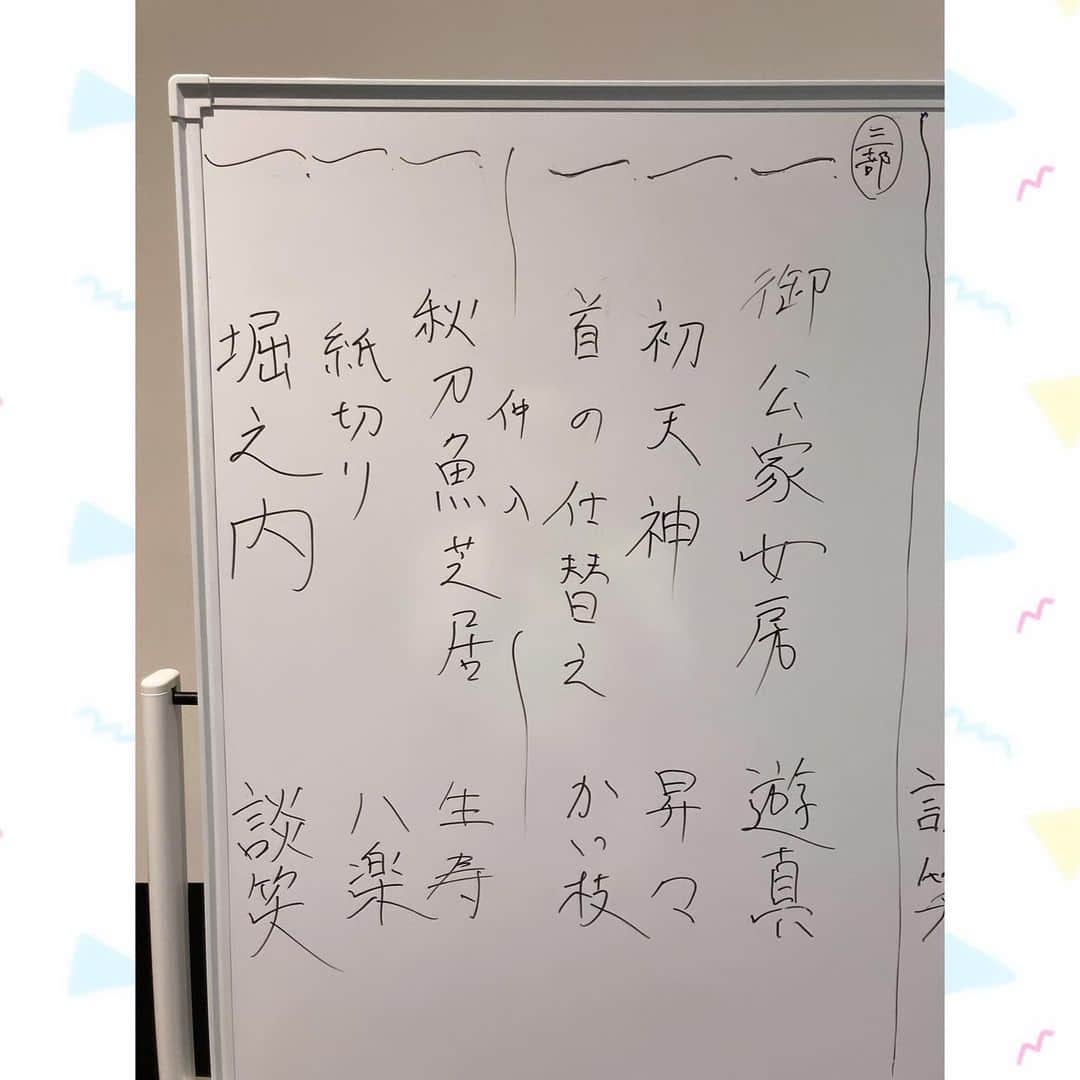 三部
一、御公家女房 遊真
一、初天神 昇々
一、首の仕替え かい枝
仲入
一、秋刀魚芝居 生寿
一、紙切り 八楽
一、堀之内 談笑